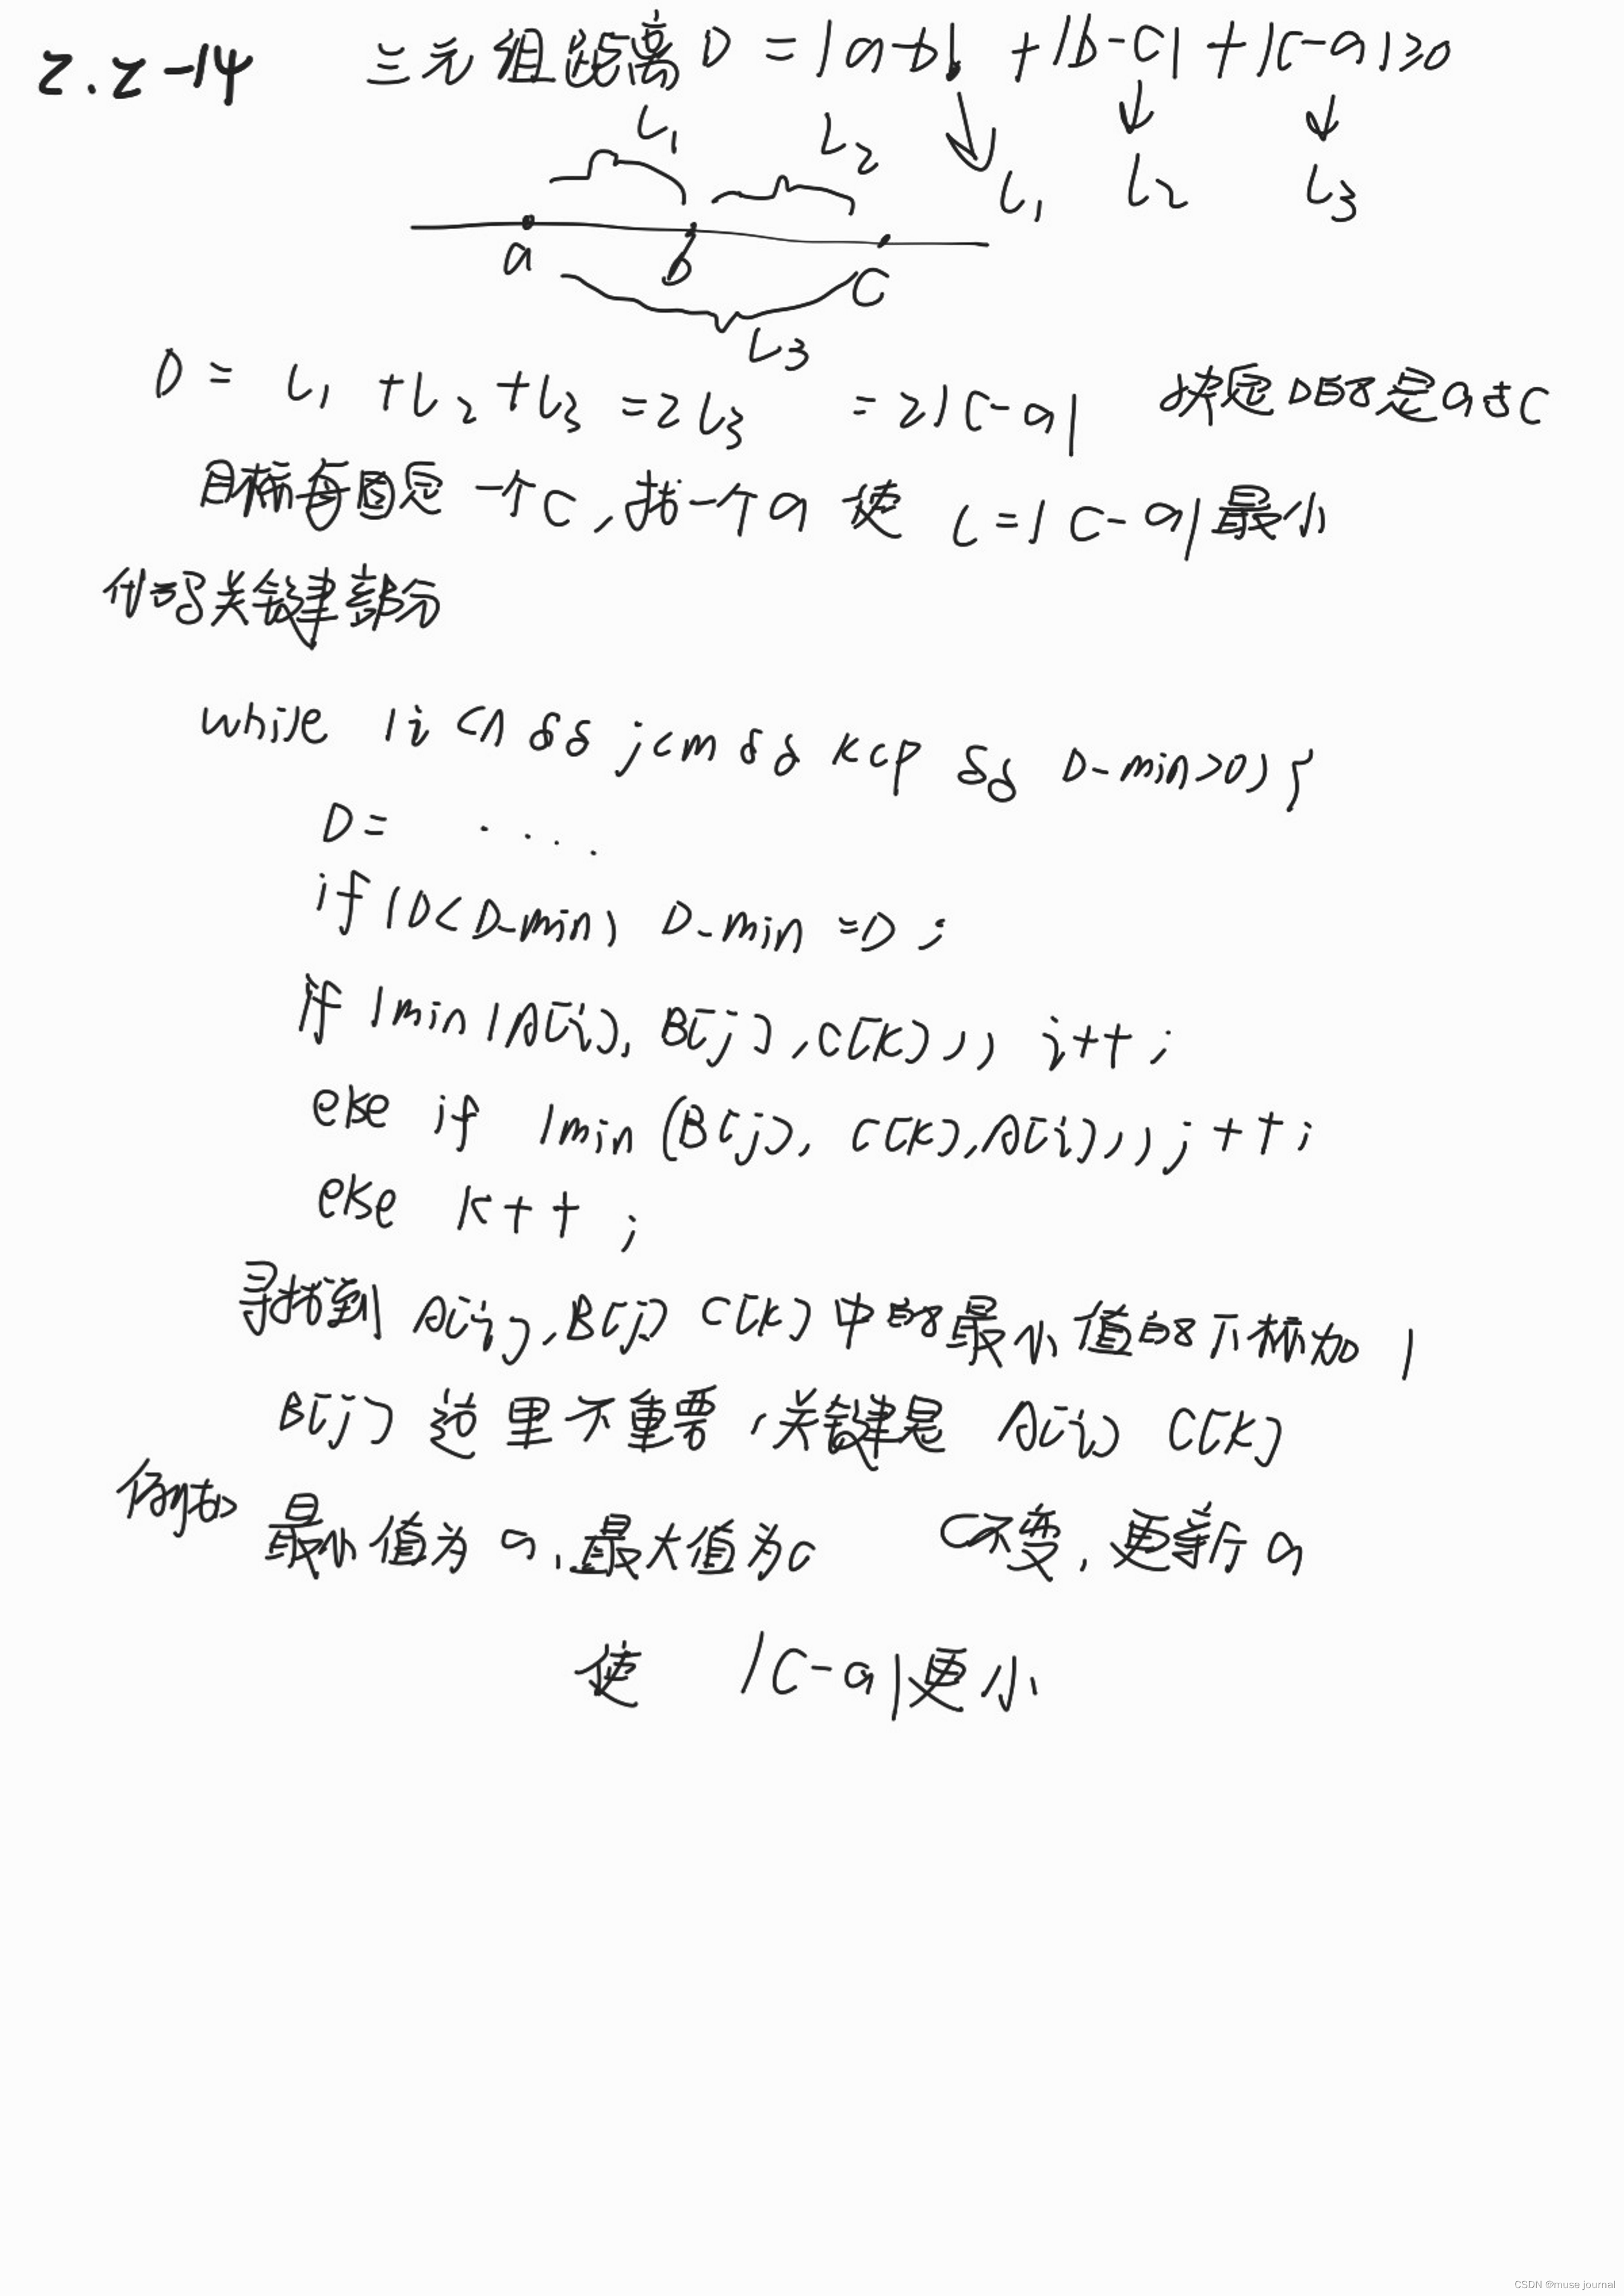 2.2-14 三元组距离 D = |a-b| + |b-c| + |c-a| ≥0
L1 L2 L1 L2 L3
a b c
L3
D = L1 + L2 + L3 = 2L3 = 2|c-a| 决定D的是a与c
目标每固定一个c,找一个a 使 L=|c-a|最小
代码关键部分
while (i<n && j<m && k<p && D-min>0) {
D= ....
if (D<D-min) D-min =D ;
if (min(A[i], B[j], C[k])) i++ ;
else if (min(B[j], C[k], A[i])) j++ ;
else k++ ;
寻找到 A[i], B[j] C[k] 中的最小值的下标加1
B[j] 这里不重要,关键是 A[i] C[k]
例如 最小值为a,最大值为c c不变,更新a
使 |c-a|更小
CSDN @muse journal